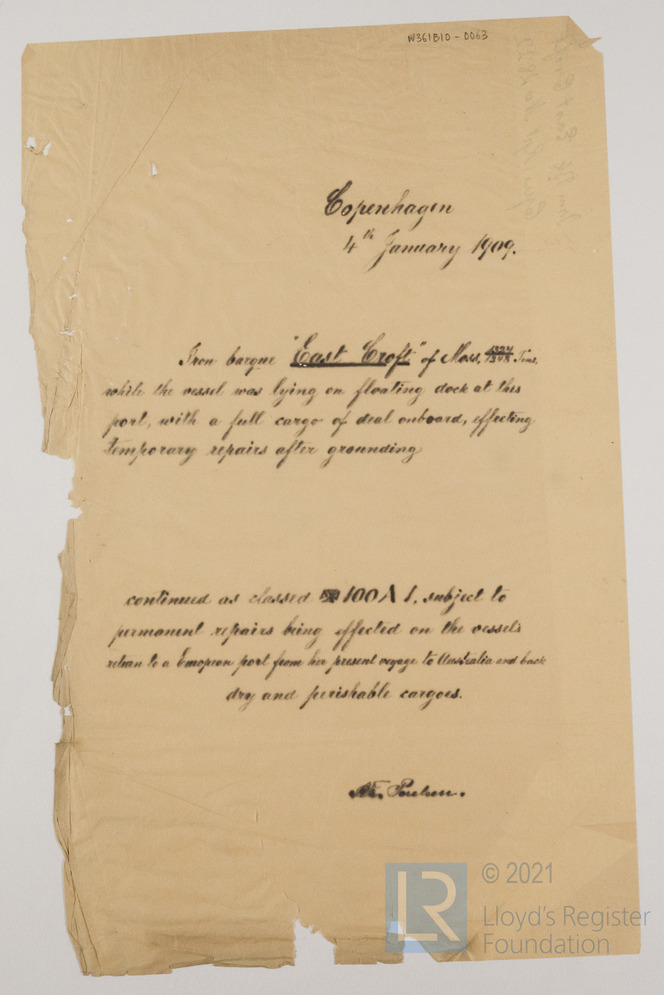 W361B10 - 0063
Copenhagen
4th January 1909.
Iron barque "East Croft" of Moss, Tons,
while the vessel was lying on floating dock at this
port, with a full cargo of deal onboard, effecting
temporary repairs after grounding
continued as classed 100 A 1, subject to
permanent repairs being effected on the vessel's
return to a European port from her present voyage to Australia and back
dry and perishable cargoes.
LR
© 2021
Lloyd's Register
Foundation